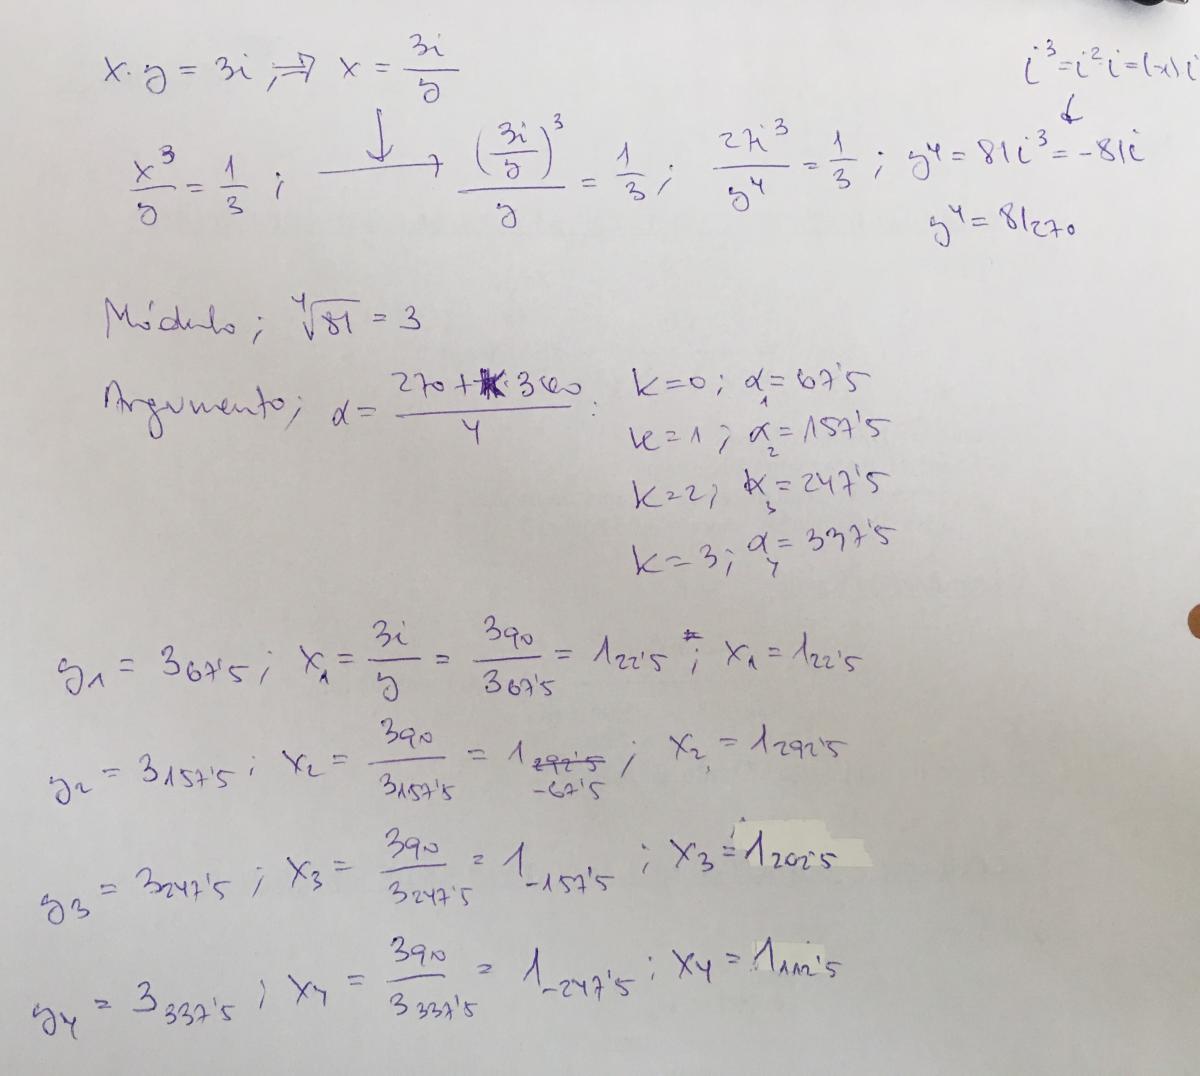 x · y = 3i ; ⇒ x = 3i/y
i³ = i² i = (-1) i
x³/y = 1/3 ; → (3i/y)³/y = 1/3 ; 27i³/y⁴ = 1/3 ; y⁴ = 81i³ = -81i
y⁴ = 81₂₇₀
Módulo ; ⁴√81 = 3
Argumento ; α = (270 + k · 360)/4 :
k = 0 ; α₁ = 67'5
k = 1 ; α₂ = 157'5
k = 2 ; α₃ = 247'5
k = 3 ; α₄ = 337'5
y₁ = 3₆₇'₅ ; x₁ = 3i/y = 3₉₀/3₆₇'₅ = 1₂₂'₅ ; x₁ = 1₂₂'₅
y₂ = 3₁₅₇'₅ ; x₂ = 3₉₀/3₁₅₇'₅ = 1₋₆₇'₅ ; x₂ = 1₂₉₂'₅
y₃ = 3₂₄₇'₅ ; x₃ = 3₉₀/3₂₄₇'₅ = 1₋₁₅₇'₅ ; x₃ = 1₂₀₂'₅
y₄ = 3₃₃₇'₅ ; x₄ = 3₉₀/3₃₃₇'₅ = 1₋₂₄₇'₅ ; x₄ = 1₁₁₂'₅